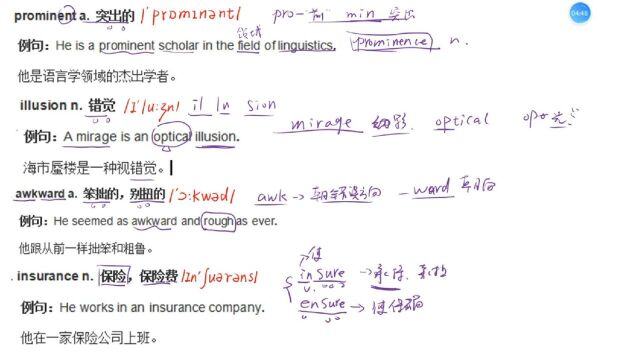 prominent a. 突出的 /ˈprɒmɪnənt/ pro-前 min 突出
领域
例句：He is a prominent scholar in the field of linguistics. prominence n.
他是语言学领域的杰出学者。
illusion n. 错觉 /ɪˈluːʒn/ il lu sion
mirage 幻影 optical
例句：A mirage is an optical illusion.
海市蜃楼是一种视错觉。
awkward a. 笨拙的，别扭的 /ˈɔːkwəd/ awk → 朝错误方向 - ward 朝向
例句：He seemed as awkward and rough as ever.
他跟从前一样拙笨和粗鲁。
使
insurance n. 保险，保险费 /ɪnˈʃʊərəns/ insure →
例句：He works in an insurance company. ensure → 使确
他在一家保险公司上班。
04:48